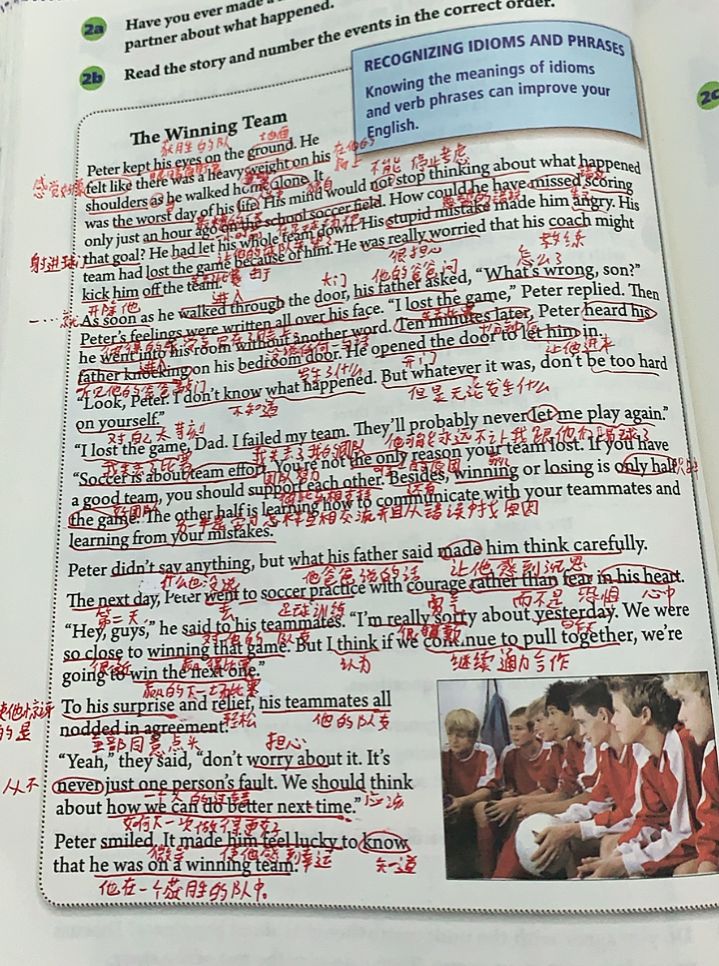 2a
Have you ever made a
partner about what happened.
2b
Read the story and number the events in the correct order.
RECOGNIZING IDIOMS AND PHRASES
Knowing the meanings of idioms
and verb phrases can improve your
English.
2c
The Winning Team
获胜的队
地面
Peter kept his eyes on the ground. He
在他的
肩上
感觉好像
felt like there was a heavy weight on his
不能停止考虑
shoulders as he walked home alone. It
was the worst day of his life. His mind would not stop thinking about what happened
only just an hour ago on the school soccer field. How could he have missed scoring
射进球门
that goal? He had let his whole team down. His stupid mistake made him angry. His
team had lost the game because of him. He was really worried that his coach might
很担心
教练
kick him off the team.
开除他
由于
进入
大门
他的爸爸问
怎么了
一……就
As soon as he walked through the door, his father asked, “What’s wrong, son?”
Peter’s feelings were written all over his face. “I lost the game,” Peter replied. Then
he went into his room without another word. Ten minutes later, Peter heard his
进入
十分钟后
father knocking on his bedroom door. He opened the door to let him in.
开门
让他进来
发生了什么
“Look, Peter. I don’t know what happened. But whatever it was, don’t be too hard
不知道
但是无论发生什么
on yourself.”
对自己太苛刻
“I lost the game, Dad. I failed my team. They’ll probably never let me play again.”
“Soccer is about team effort. You’re not the only reason your team lost. If you have
团队努力
a good team, you should support each other. Besides, winning or losing is only half
好团队
还有
the game. The other half is learning how to communicate with your teammates and
另一半是学习怎样互相交流并且从错误中找原因
learning from your mistakes.
Peter didn’t say anything, but what his father said made him think carefully.
什么也没说
他爸爸说的话
让他感到沉思
The next day, Peter went to soccer practice with courage rather than fear in his heart.
第二天
去
足球训练
勇气
而不是
恐惧
心中
“Hey, guys,” he said to his teammates. “I’m really sorry about yesterday. We were
对他的队友
很抱歉
昨天
so close to winning that game. But I think if we continue to pull together, we’re
很近
认为
继续通力合作
going to win the next one.”
赢的下一场比赛
To his surprise and relief, his teammates all
轻松
他的队友
nodded in agreement.
全部同意点头
担心
“Yeah,” they said, “don’t worry about it. It’s
从不
never just one person’s fault. We should think
一个人的过错
应该
about how we can do better next time.”
如何下一次做得更好
Peter smiled. It made him feel lucky to know
微笑
使他感到幸运
知道
that he was on a winning team.
他在一个获胜的队中。